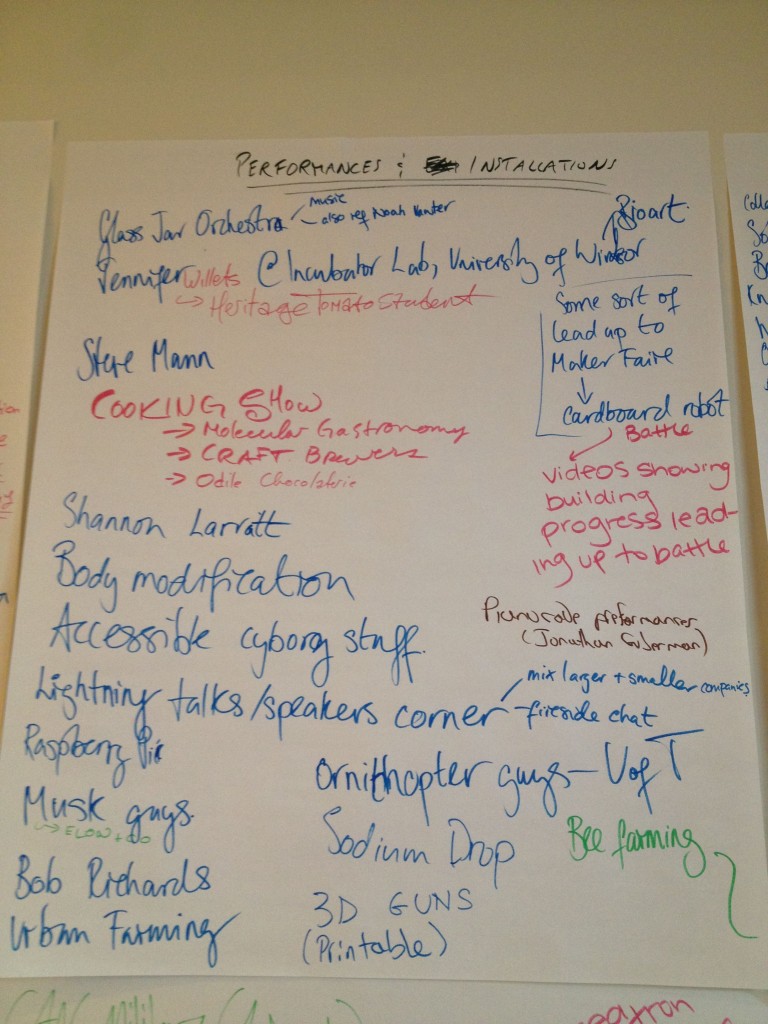 PERFORMANCES & INSTALLATIONS
Glass Jar Orchestra
music
also ref Noah
Bioart
Jennifer Willets @ Incubator Lab, University of Windsor
→ Heritage Tomato Student
Some sort of
lead up to
Maker Faire
↓
cardboard robot
Battle
videos showing
building
progress lead-
ing up to battle
Steve Mann
COOKING SHOW
→ Molecular Gastronomy
→ CRAFT Brewers
→ Odile Chocolaterie
Shannon Larratt
Body modification
Accessible cyborg stuff.
preformances
(Jonathan Guberman)
Lightning talks/speakers corner
mix larger + smaller companies
fireside chat
Raspberry Pi
Ornithopter guys - U of T
Musk guys
→ ELON + co
Sodium Drop
Bee farming
Bob Richards
3D GUNS
(Printable)
Urban Farming